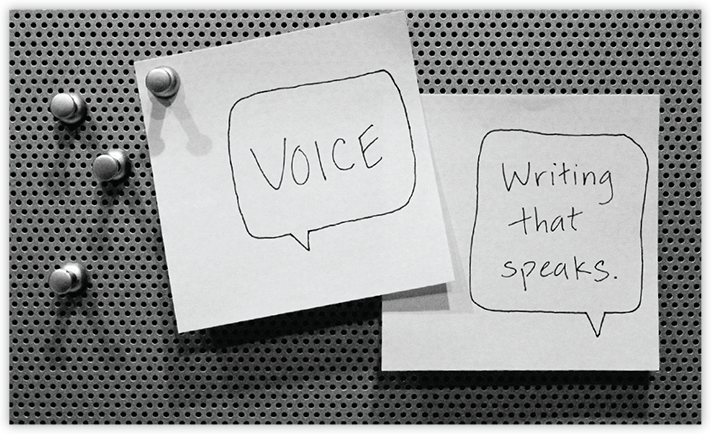 VOICE
Writing
that
speaks.